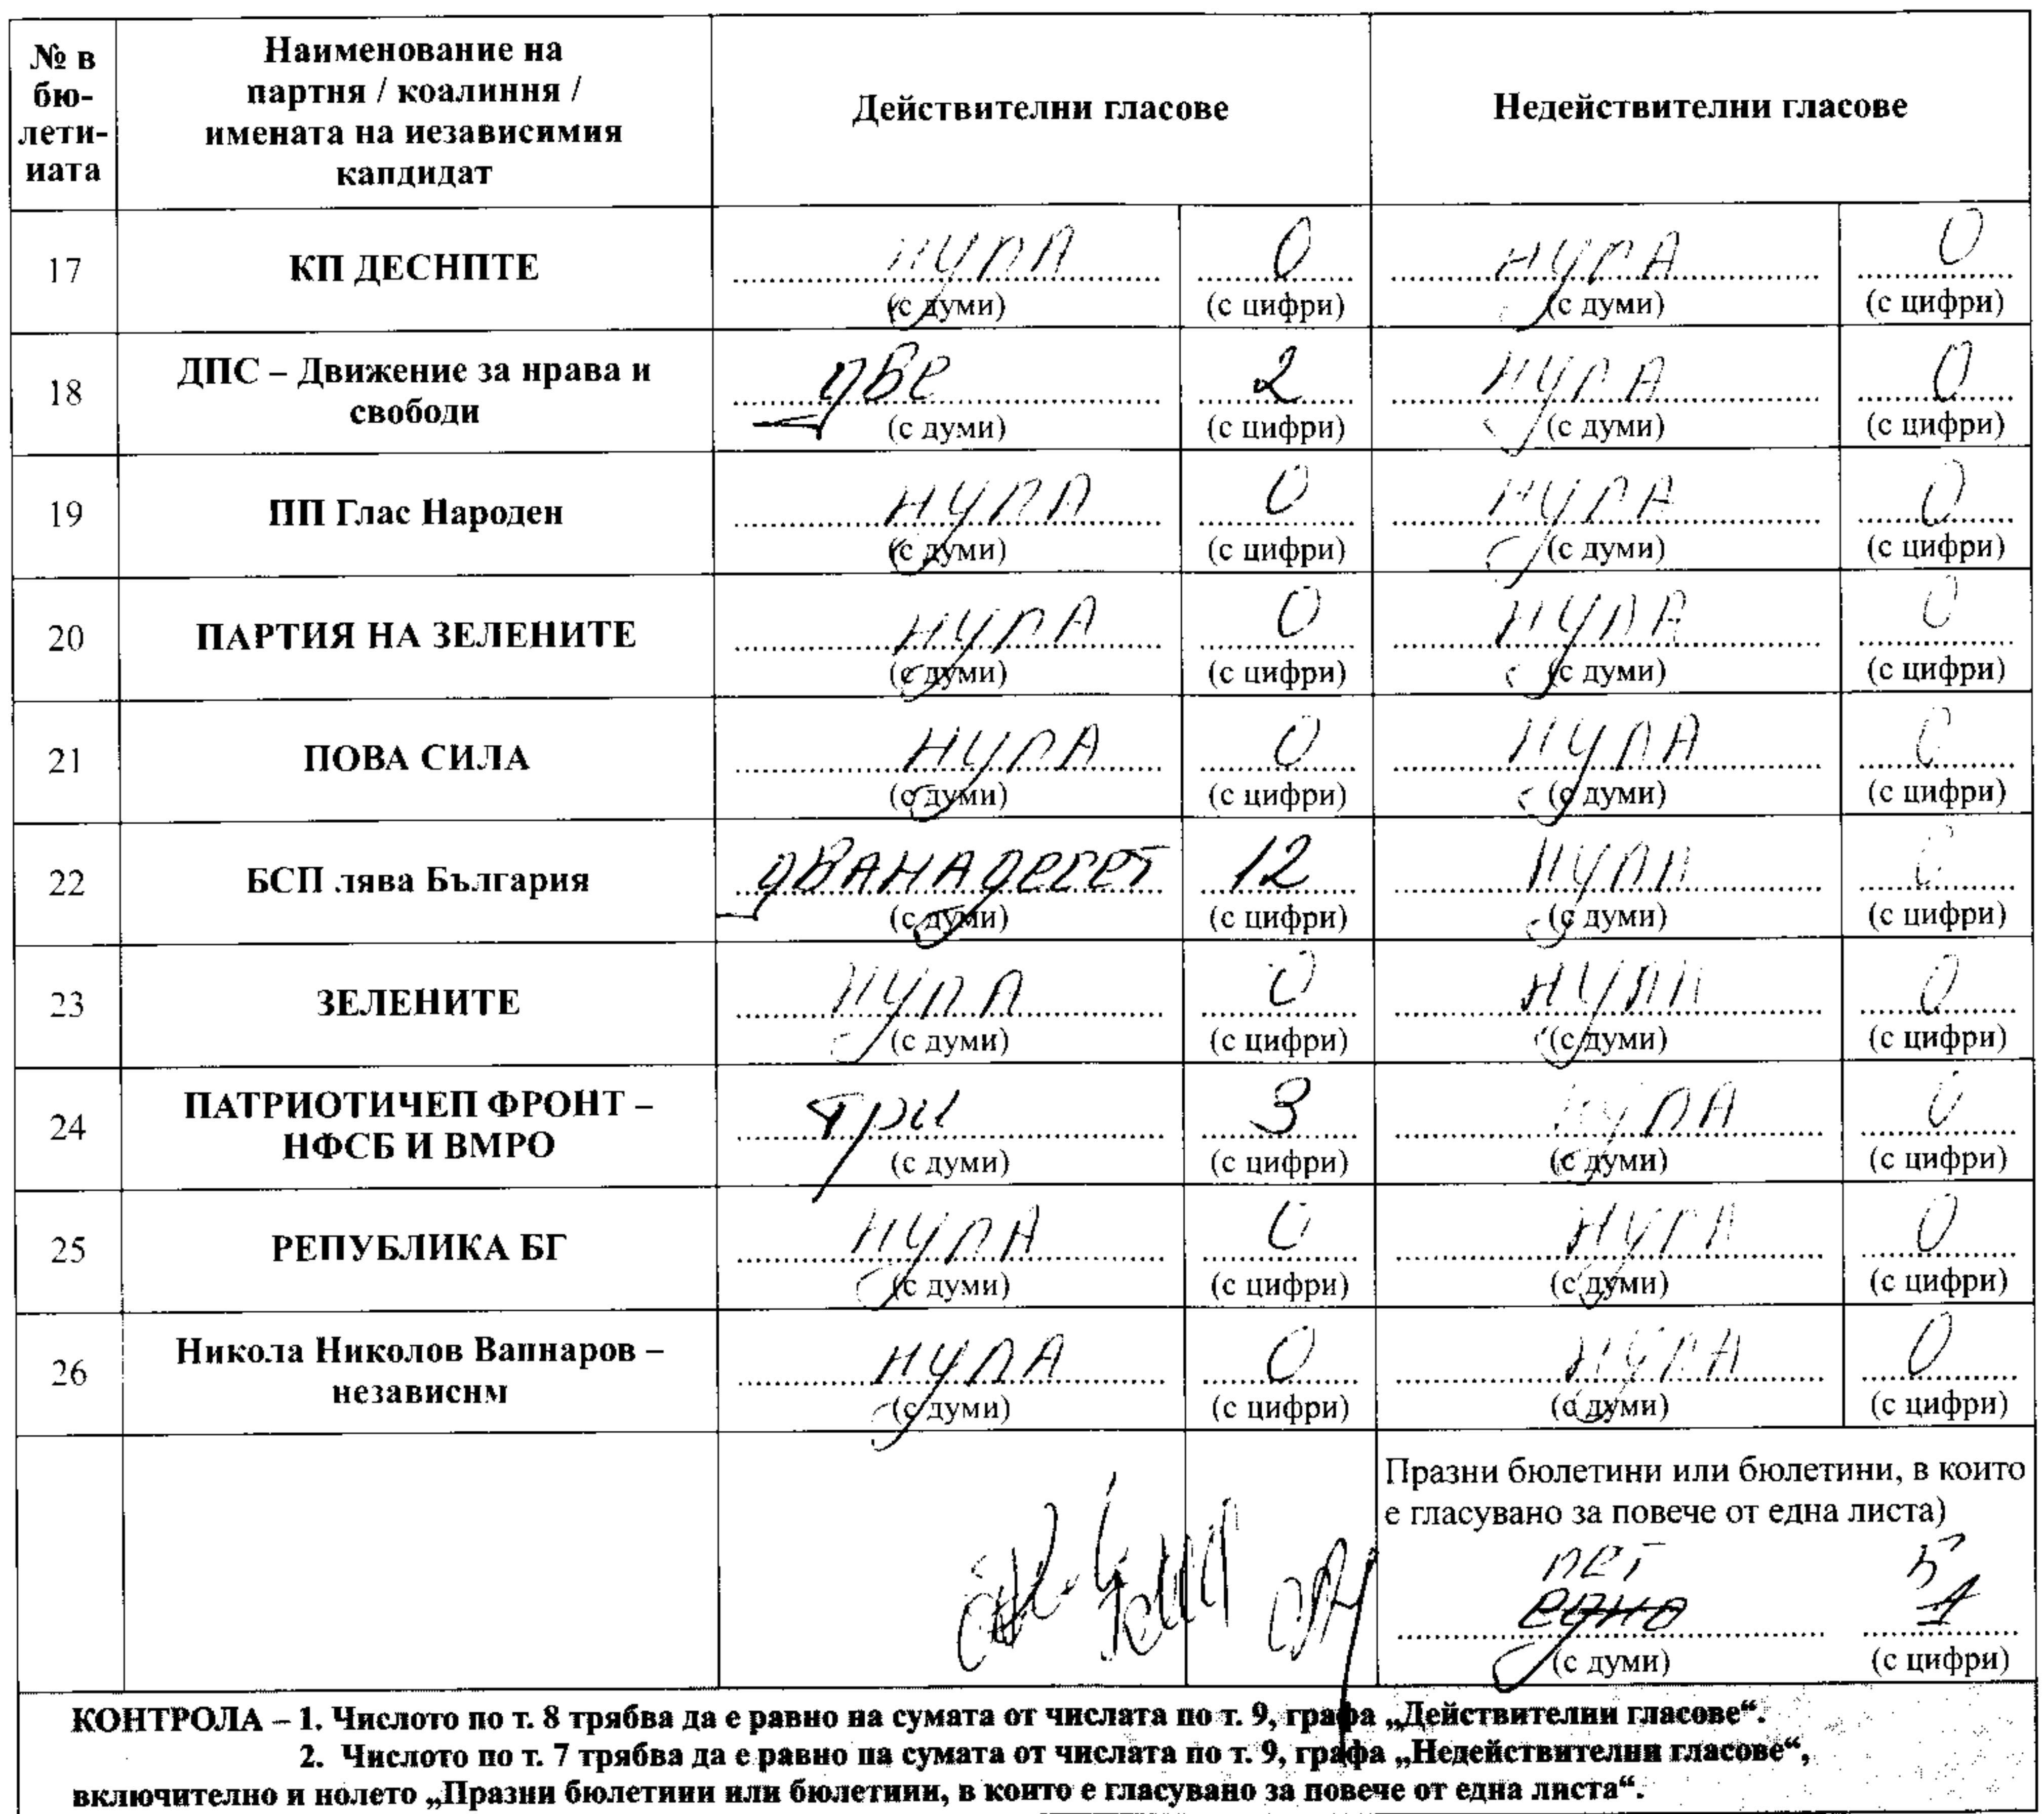 № в бю-лети-ната
Наименование на партия / коалиция / имената на независимия кандидат
Действителни гласове
Недействителни гласове
17 КП ДЕСНИТЕ нула 0 нула 0
(с думи) (с цифри) (с думи) (с цифри)
18 ДПС – Движение за права и свободи две 2 нула 0
(с думи) (с цифри) (с думи) (с цифри)
19 ПП Глас Народен нула 0 нула 0
(с думи) (с цифри) (с думи) (с цифри)
20 ПАРТИЯ НА ЗЕЛЕНИТЕ нула 0 нула 0
(с думи) (с цифри) (с думи) (с цифри)
21 НОВА СИЛА нула 0 нула 0
(с думи) (с цифри) (с думи) (с цифри)
22 БСП лява България дванадесет 12 нула 0
(с думи) (с цифри) (с думи) (с цифри)
23 ЗЕЛЕНИТЕ нула 0 нула 0
(с думи) (с цифри) (с думи) (с цифри)
24 ПАТРИОТИЧЕН ФРОНТ – НФСБ И ВМРО три 3 нула 0
(с думи) (с цифри) (с думи) (с цифри)
25 РЕПУБЛИКА БГ нула 0 нула 0
(с думи) (с цифри) (с думи) (с цифри)
26 Никола Николов Вапцаров – независим нула 0 нула 0
(с думи) (с цифри) (с думи) (с цифри)
Празни бюлетини или бюлетини, в които
е гласувано за повече от една листа)
пет 5
едно 1
(с думи) (с цифри)
КОНТРОЛА – 1. Числото по т. 8 трябва да е равно на сумата от числата по т. 9, графа „Действителни гласове“.
2. Числото по т. 7 трябва да е равно на сумата от числата по т. 9, графа „Недействителни гласове“,
включително и полето „Празни бюлетини или бюлетини, в които е гласувано за повече от една листа“.